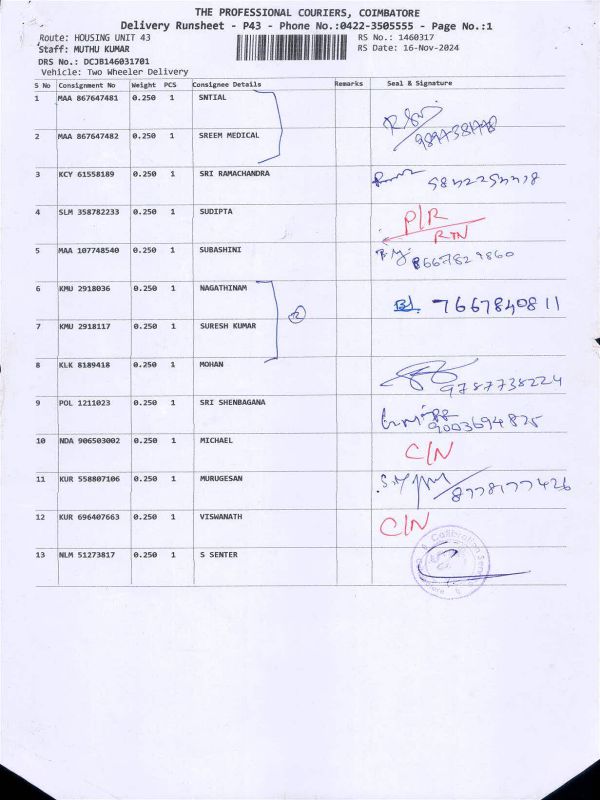 THE PROFESSIONAL COURIERS, COIMBATORE
Delivery Runsheet - P43 - Phone No.:0422-3505555 - Page No.:1
Route: HOUSING UNIT 43 RS No.: 1460317
Staff: MUTHU KUMAR RS Date: 16-Nov-2024
DRS No.: DCJB146031701
Vehicle: Two Wheeler Delivery
S No Consignment No Weight PCS Consignee Details Remarks Seal & Signature
1 MAA 867647481 0.250 1 SNTIAL
2 MAA 867647482 0.250 1 SREEM MEDICAL
3 KCY 61558189 0.250 1 SRI RAMACHANDRA
4 SLM 358782233 0.250 1 SUDIPTA P/R
RTN
5 MAA 107748540 0.250 1 SUBASHINI 8667829860
6 KMU 2918036 0.250 1 NAGATHINAM 7667840811
2
7 KMU 2918117 0.250 1 SURESH KUMAR
8 KLK 8189418 0.250 1 MOHAN 9787738224
9 POL 1211023 0.250 1 SRI SHENBAGANA 9003694825
10 NDA 906503002 0.250 1 MICHAEL C/N
11 KUR 558807106 0.250 1 MURUGESAN 8778177426
12 KUR 696407663 0.250 1 VISWANATH C/N
13 NLM 51273817 0.250 1 S SENTER